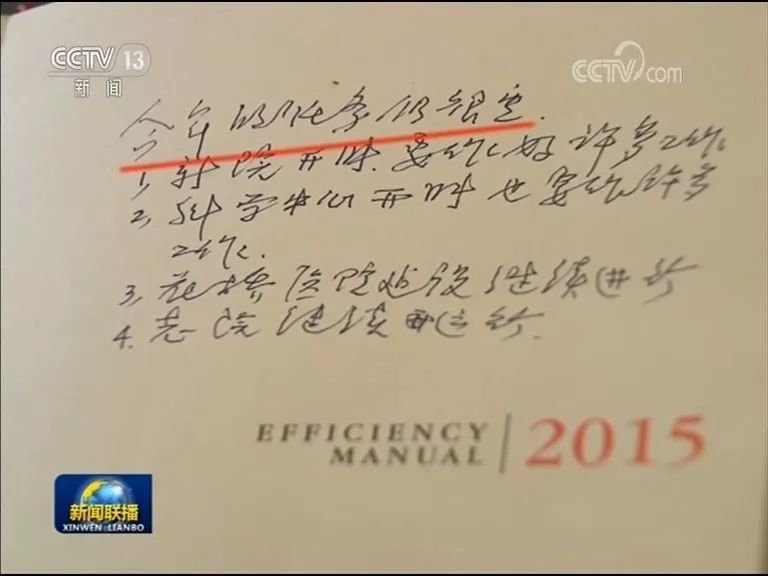 CCTV 13
新闻
CCTV.com
今年的任务仍很重.
1, 新院开时.要作好许多工作.
2, 科学中心开时也要作许多
工作.
3, 医院建设继续进行
4. 老院继续运行.
EFFICIENCY
MANUAL
2015
新闻联播
XINWEN LIANBO